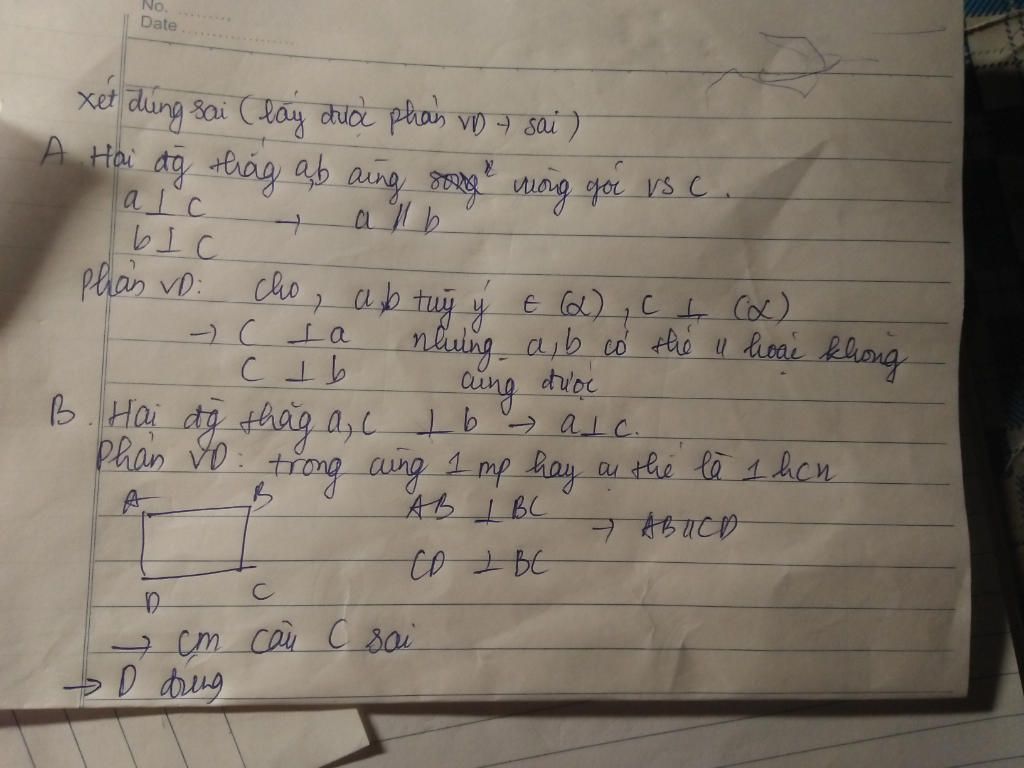 No. ........
Date ....................
xét đúng sai (lấy được phản VD → sai)
A. Hai đg thẳg a,b cùng vuông góc vs c.
a ⊥ c → a // b
b ⊥ c
phản VD: cho, a,b tuỳ ý ∈ (α), c ⊥ (α)
→ c ⊥ a nhưng a,b có thể // hoặc không
c ⊥ b cũng được
B. Hai đg thẳg a,c ⊥ b → a ⊥ c.
Phản VD: trong cùng 1 mp hay cụ thể là 1 hcn
A B
AB ⊥ BC → AB // CD
CD ⊥ BC
D C
→ cm câu C sai
→ D đúng